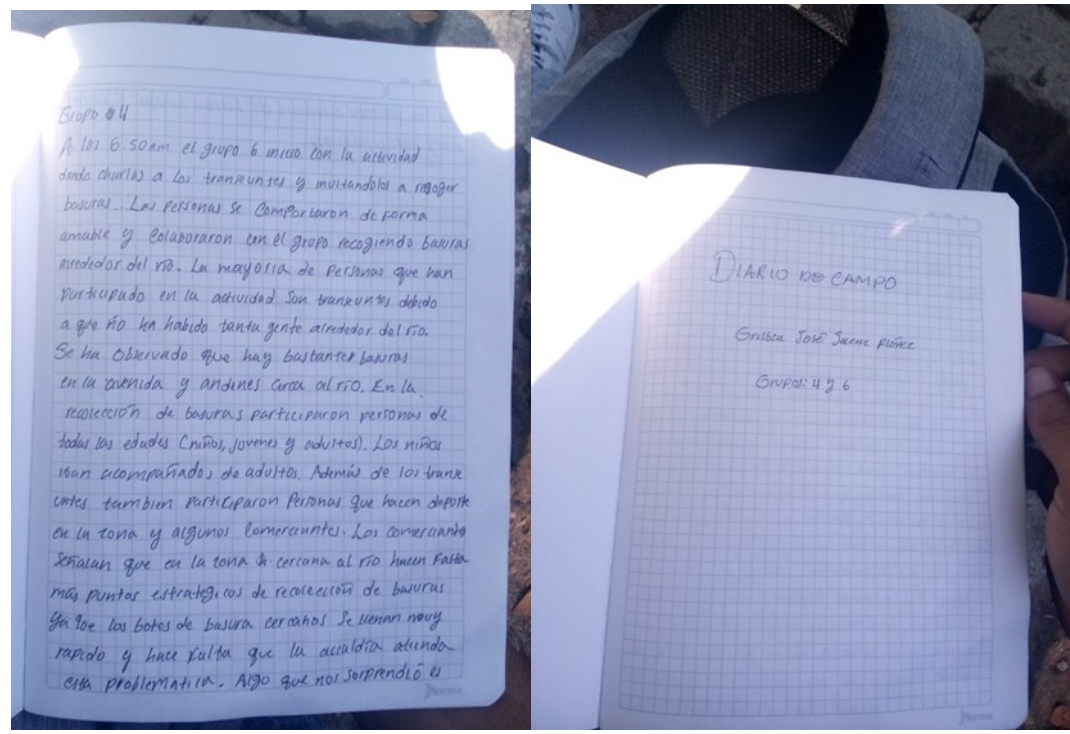 Grupo 4
A las 6:50am el grupo 6 inicio con la actividad
dando charlas a los transeuntes y invitandolos a recoger
basuras... Las personas se comportaron de forma
amable y colaboraron con el grupo recogiendo basuras
alrededor del río. La mayoria de personas que han
participado en la actividad son transeuntes debido
a que no ha habido tanta gente alrededor del río.
Se ha observado que hay bastantes basuras
en la avenida y andenes cerca al río. En la
recolección de basuras participaron personas de
todas las edades (niños, jovenes y adultos). Los niños
iban acompañados de adultos. Además de los transe
untes tambien participaron personas que hacen deporte
en la zona y algunos comerciantes. Los comerciante
señalan que en la zona cercana al río hacen falta
más puntos estrategicos de recolección de basuras
ya que los botes de basura cercanos se llenan muy
rapido y hace falta que la alcaldía atienda
esta problematica. Algo que nos sorprendió es
norma
DIARIO DE CAMPO
José
Grupos: 4 y 6
norma